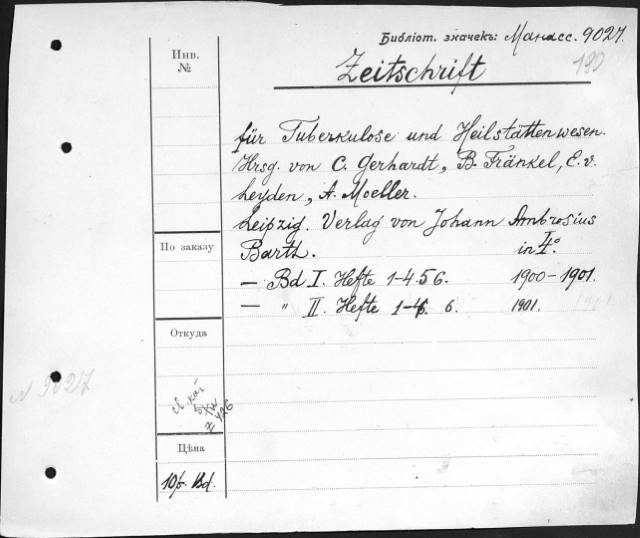 Библіот. значекъ: Манасс. 9027.
190
Инв.
№
Zeitschrift
für Tuberkulose und Heilstättenwesen.
Hrsg. von C. Gerhardt, B. Fränkel, E. v.
Leyden, A. Moeller.
Leipzig. Verlag von Johann Ambrosius
Barth. in 4°.
По заказу
— Bd I. Hefte 1-4. 5 6. 1900-1901.
— " II. Hefte 1-4. 6. 1901.
Откуда
N 9027
Z 426
Цѣна
Bd.